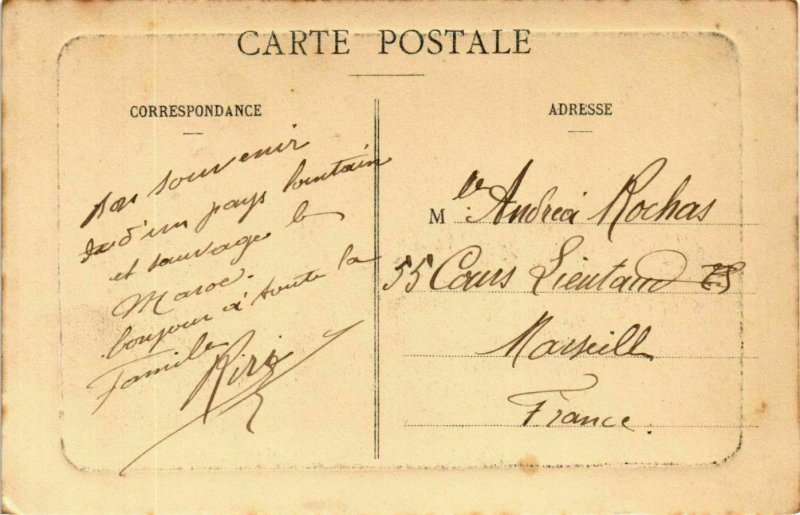 CARTE POSTALE
CORRESPONDANCE
souvenir
d'un pays lointain
et sauvage le
Maroc.
bonjour à toute la
Famille
Riri
ADRESSE
Mlle Andréa Rochas
55 Cours Lieutaud
Marseill
France.